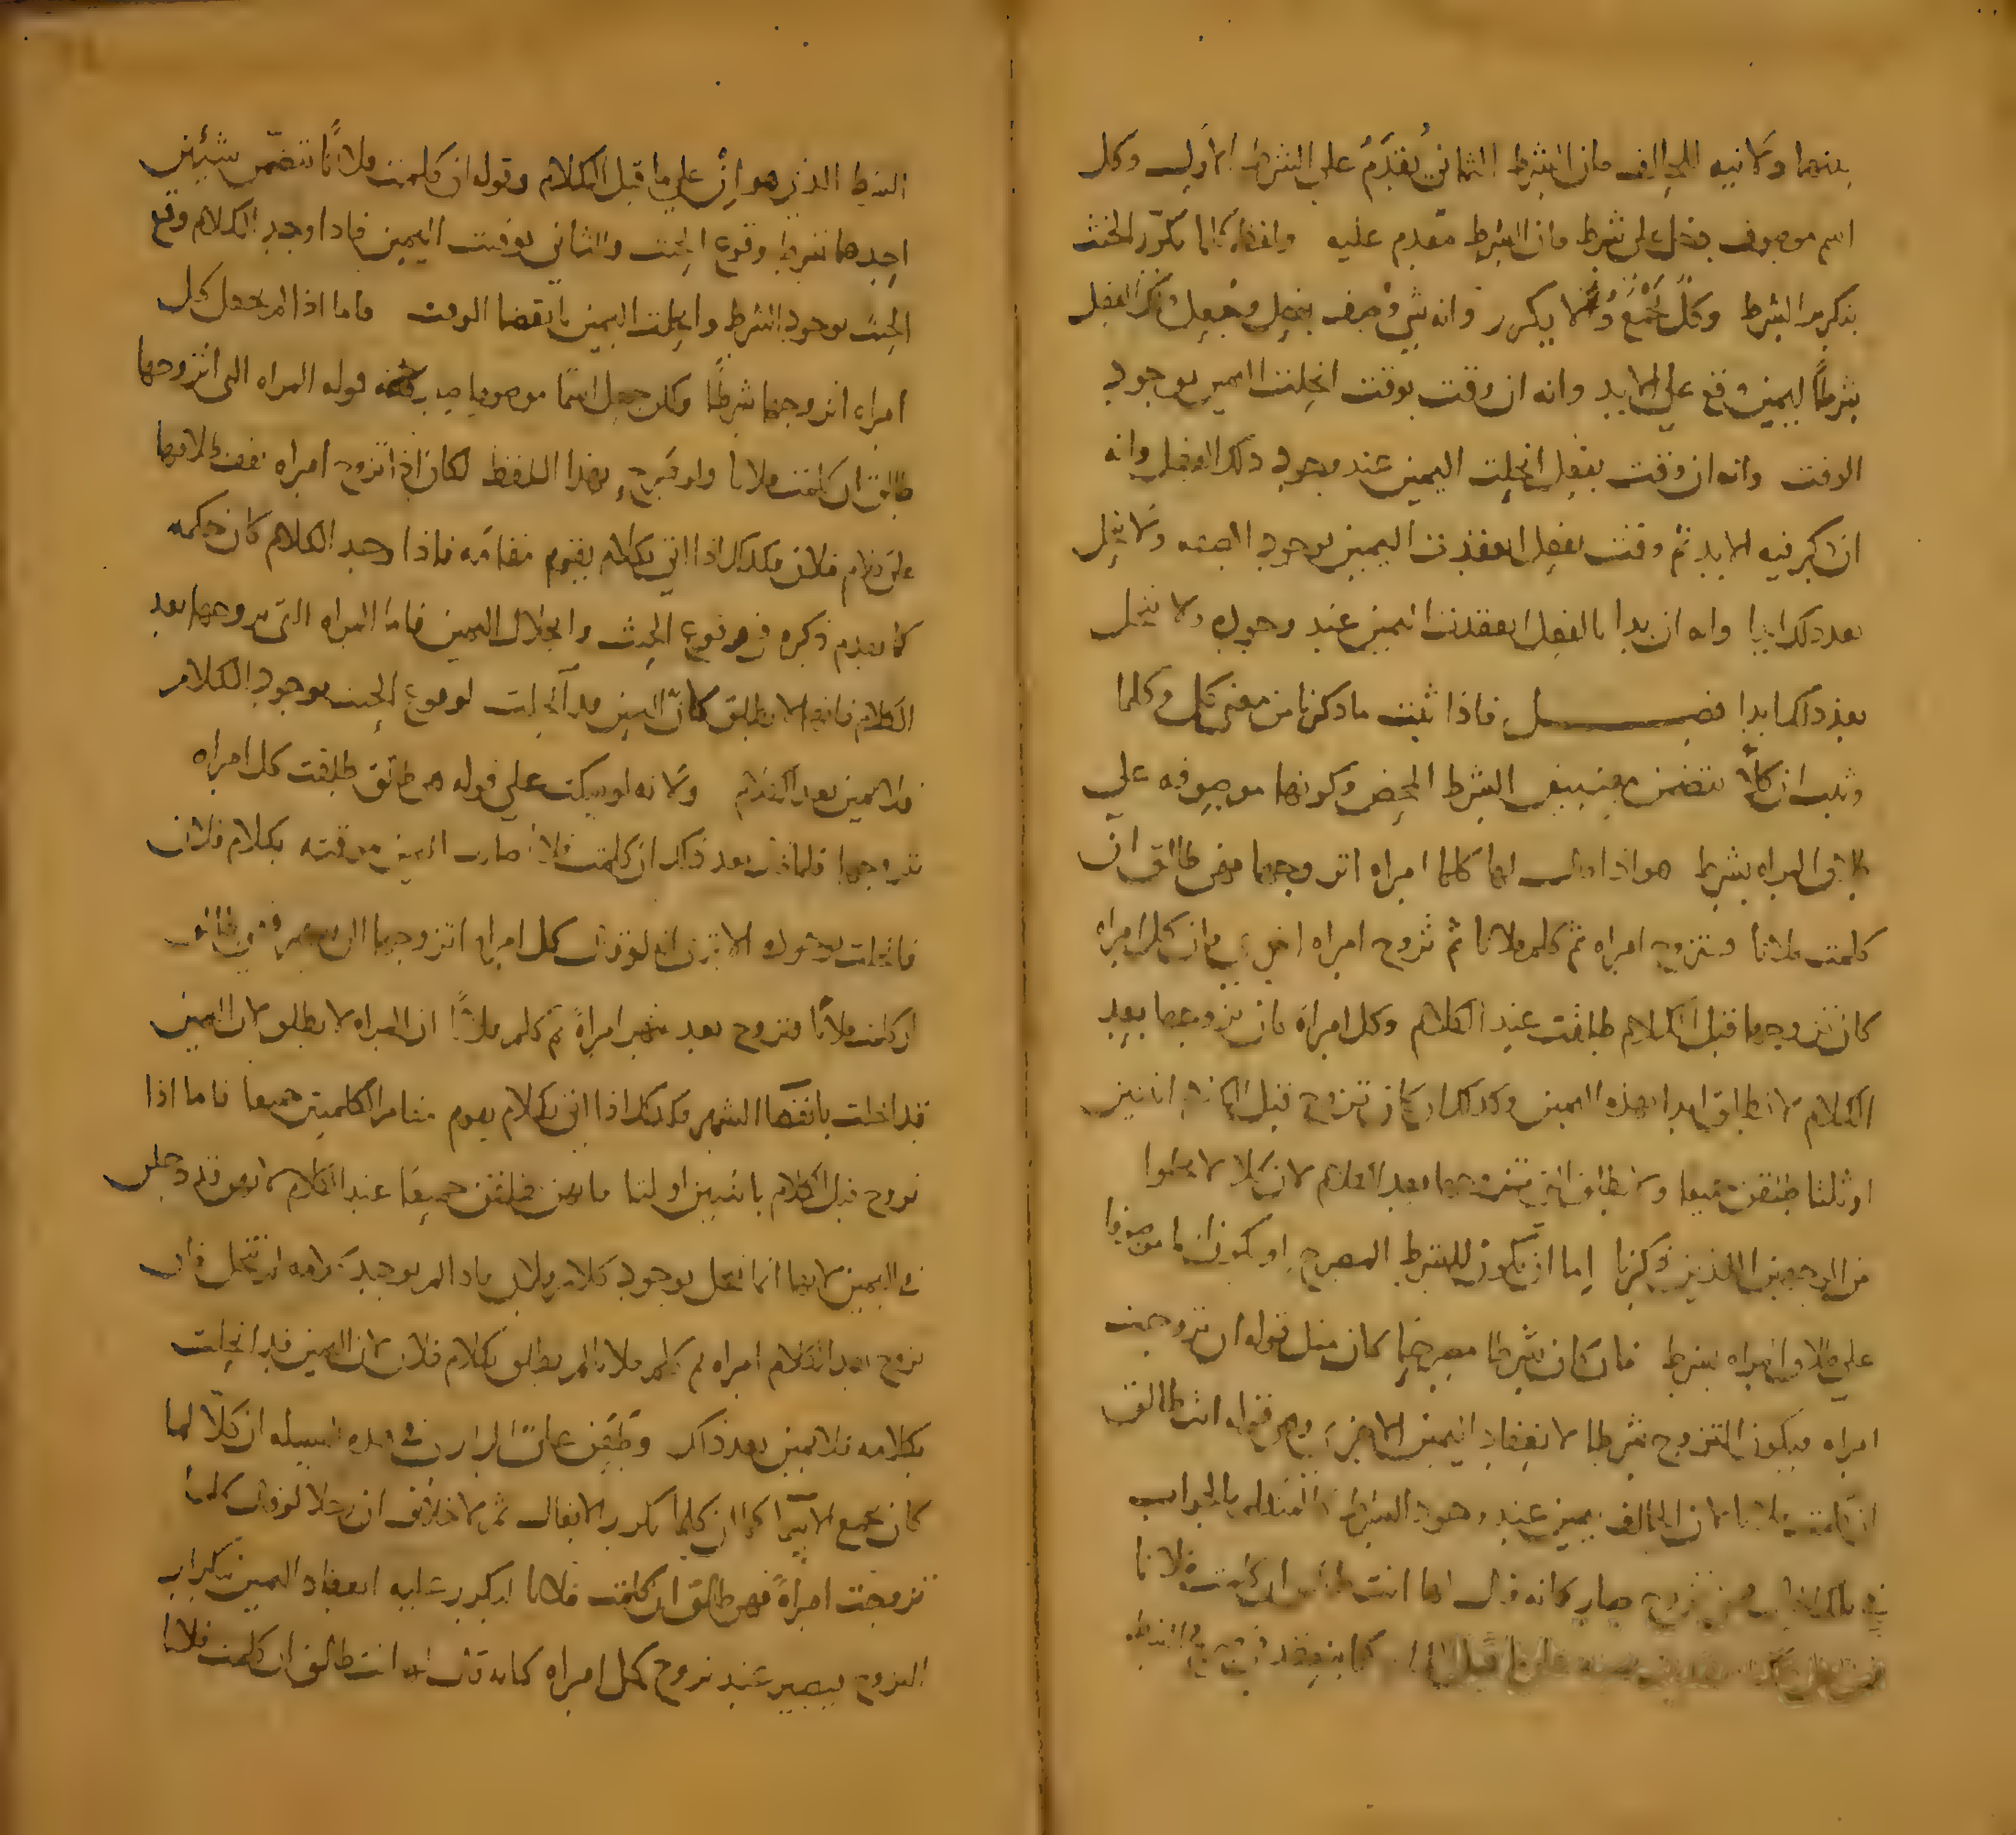 بينهما ولا نيه للحالف فان الشرط الثاني يُقدَّمُ علي الشرط الاول وكل
اسم موصوف دخل على شرط فان الشرط مقدم عليه وان كلما تكرّر الحنث
بتكرير الشرط وكلٌّ تجمع ولا تكرر وانه متى وُصف بفعل وجعل ذكر الفعل
شرطًا لليمين وقع على الابد وانه ان وقت بوقت انحلت اليمين بوجود
الوقت وانه ان وقت بفعل انحلت اليمين عند وجود ذلك الفعل وانه
ان ذكر فيه الابد ثم وقت بفعل انعقدت اليمين بوجود الصفه ولا تنحل
بعد ذلك ابدا وانه ان بدا بالفعل انعقدت اليمين عند وجوده ولا تنحل
بعد ذلك ابدا فصــــــل فاذا ثبت ما ذكرنا من معنى كل وكلما
وثبت ان كلاًّ تتضمن معنيين الشرط المحض وكونها موصوفه على
طلاق المراه بشرط هو اذا قال لها كلما امراه اتزوجها فهي طالق ان
كلمت فلانا فتزوج امراه ثم كلم فلانا ثم تزوج امراه اخرى فان كل امراه
كان تزوجها قبل الكلام طلقت عند الكلام وكل امراة كان تزوجها بعد
الكلام لا تطلق ابدا بهذه اليمين وكذلك ان كان تزوج قبل الكلام اثنتين
او ثلثا طلقن جميعا ولا تطلق التي تزوجها بعد الكلام لان كلا لا يخلوا
من الوجهين اللذين ذكرنا إما ان تكون للشرط المصرح او تكون اسما موصوفا
على طلاق المراه بشرط فان كان شرطا مصرحا كان مثل قوله ان تزوجت
امراه فيكون التزوج شرطا لانعقاد اليمين الاخرى وهي قوله انت طالق
ان كلمت فلانا فان الحالف يمين عند وجود الشرط كالمتكلم بالجواب
في تلك الحال فمتى تزوج صار كانه قال لها انت طالق ان كلمت فلانا
على ما قبل كما ينعقد
الشرط الذي هو إن علي ما قبل الكلام وقوله ان كلمت فلانًا تتضمّن شيئين
احدهما شرط وقوع الحنث والثاني توقيت اليمين فاذا وجد الكلام وقع
الحنث بوجود الشرط وانحلت اليمين بانقضا الوقت فاما اذا لم يجعل كل
امراه اتزوجها شرطًا ولكن جعل اسمًا موصوفا صار قوله المراه التي اتزوجها
طالق ان كلمت فلانا ولو صرح بهذا اللفظ لكان اذا تزوج امراه تعلق طلاقها
على كلام فلان فكذلك اذا اتي بكلام يقوم مقامه فاذا وجد الكلام كان حكمه
كما تقدم ذكره في وقوع الحنث وانحلال اليمين فاما المراه التي تزوجها بعد
الكلام فانها لا تطلق لان اليمين قد انحلت لوقوع الحنث بوجود الكلام
فلا يمين بعد الكلام ولانه لو سكت على قوله هي طالق طلقت كل امراه
تزوجها فلما قال بعد ذلك ان كلمت فلانا صارت اليمين موقته بكلام فلان
فانحلت بوجوده الا ترى انه لو قال كل امراه اتزوجها الى شهر فهي طالق
ان كلمت فلانًا فتزوج بعد شهر امراةً ثم كلم فلانًا ان المراه لا تطلق لان اليمين
قد انحلت بانقضا الشهر وكذلك اذا اتي بكلام يقوم مقام الكلمتين جميعا فاما اذا
تزوج قبل الكلام باثنتين او ثلثا فانهن طلقن جميعًا عند الكلام لانهن قد دخلن
في اليمين لانها انما تنحل بوجود كلام فلان فاذا لم يوجد كلامه لم تنحل فان
تزوج بعد الكلام امراه ثم كلم فلانا لم تطلق بكلام فلان لان اليمين قد انحلت
بكلامه فلا يمين بعد ذلك وطعن على الرازي في هذه المسيله ان كلّا لما
كان تجمع الاسما كما ان كلما تكرر الافعال ثم لا خلاف ان رجلا لو قال كلما
تزوجت امراةً فهي طالق ان كلمت فلانا لم يكرر عليه انعقاد اليمين بتكرار
التزوج فيصير عند تزوج كل امراه كانه قال لها انت طالق ان كلمت فلانا